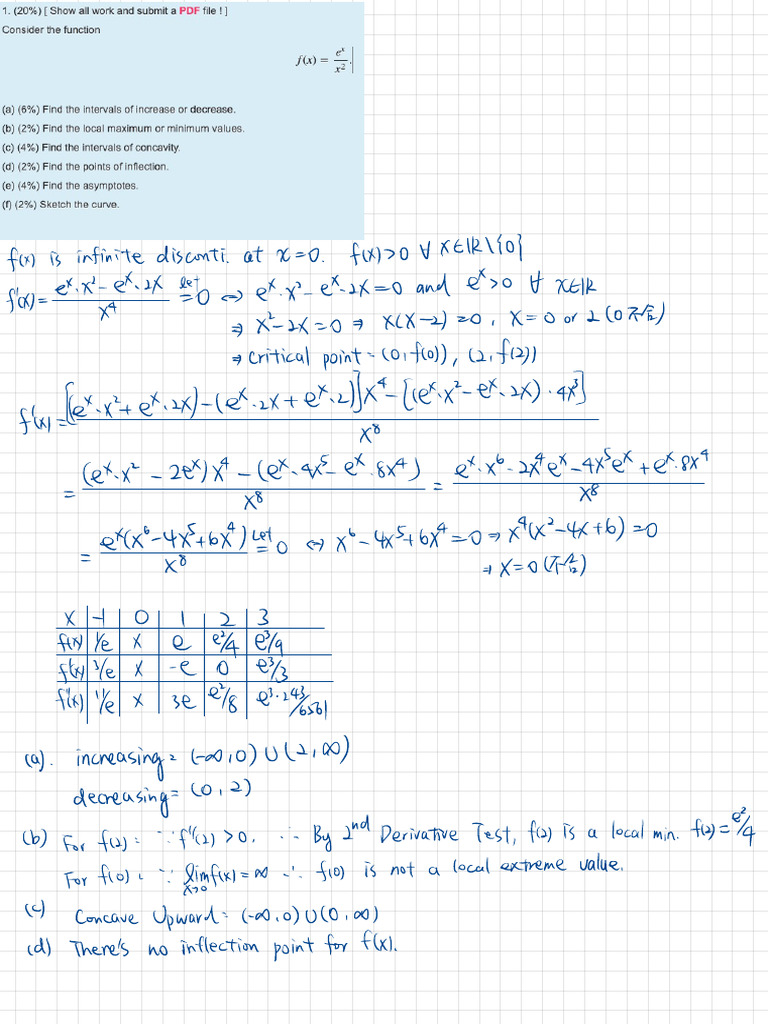 1. (20%) [ Show all work and submit a PDF file ! ]
Consider the function
f(x) = e^x / x^2 .
(a) (6%) Find the intervals of increase or decrease.
(b) (2%) Find the local maximum or minimum values.
(c) (4%) Find the intervals of concavity.
(d) (2%) Find the points of inflection.
(e) (4%) Find the asymptotes.
(f) (2%) Sketch the curve.
f(x) is infinite disconti. at x=0. f(x)>0 ∀ x∈ℝ\{0}
f'(x) = (e^x·x^2 - e^x·2x) / x^4 let = 0 ⇔ e^x·x^2 - e^x·2x = 0 and e^x>0 ∀ x∈ℝ
⇒ x^2-2x=0 ⇒ x(x-2)=0, x=0 or 2 (0不合)
⇒ critical point = (0, f(0)), (2, f(2))
f''(x) = {[(e^x·x^2 + e^x·2x) - (e^x·2x + e^x·2)]x^4 - [(e^x·x^2 - e^x·2x)·4x^3]} / x^8
= [(e^x·x^2 - 2e^x)x^4 - (e^x·4x^5 - e^x·8x^4)] / x^8 = (e^x·x^6 - 2x^4e^x - 4x^5e^x + e^x·8x^4) / x^8
= e^x(x^6-4x^5+6x^4) / x^8 Let = 0 ⇔ x^6-4x^5+6x^4=0 ⇒ x^4(x^2-4x+6)=0
⇒ x=0 (不合)
x | -1 | 0 | 1 | 2 | 3
f(x) | 1/e | x | e | e^2/4 | e^3/9
f'(x) | 3/e | x | -e | 0 | e^3/3
f''(x) | 11/e | x | 3e | e^2/8 | e^3·243/6561
(a). increasing = (-∞,0)∪(2,∞)
decreasing = (0,2)
(b) For f(2): ∵ f''(2)>0, ∴ By 2nd Derivative Test, f(2) is a local min. f(2)=e^2/4
For f(0): ∵ lim x→0 f(x)=∞ ∴ f(0) is not a local extreme value.
(c) Concave Upward = (-∞,0)∪(0,∞)
(d) There's no inflection point for f(x).